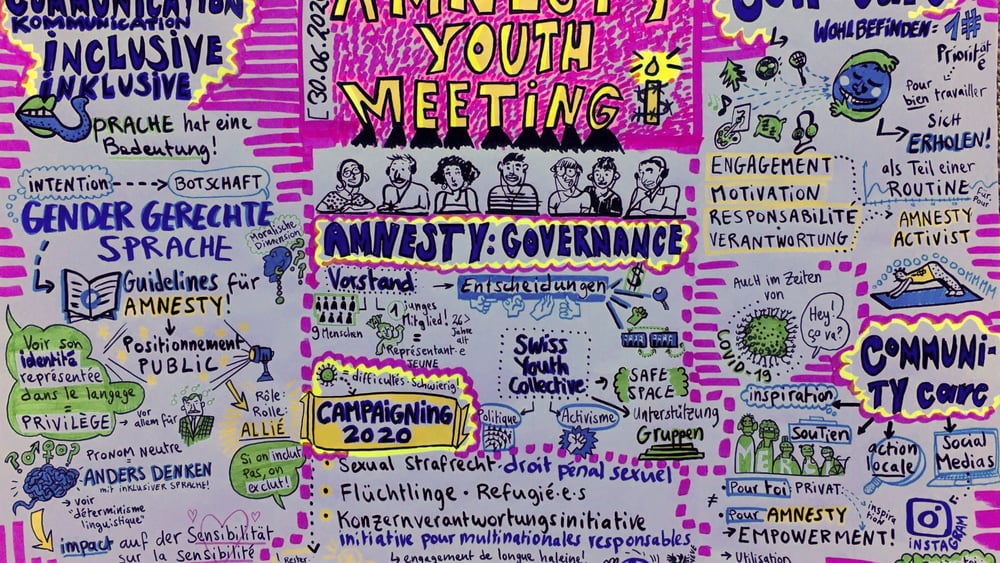 COMMUNICATION
KOMMUNIKATION
INCLUSIVE
INKLUSIVE
SPRACHE hat eine
Bedeutung!
INTENTION
BOTSCHAFT
GENDER GERECHTE
SPRACHE
Moralische
Dimension
Guidelines für
AMNESTY!
Positionnement
PUBLIC
Voir son
identité
représentée
dans le langage
=
PRIVILÈGE
vor
allem für
Rôle:
Rolle:
ALLIÉ
PRONOM NEUTRE
ANDERS DENKEN
MIT INKLUSIVER SPRACHE!
voir
"déterminisme
linguistique"
Si on inclut
pas, on
exclut!
impact auf der Sensibilität
sur la sensibilité
[30.06.202
AMNESTY
YOUTH
MEETING
AMNESTY: GOVERNANCE
Vorstand
Entscheidungen
9 Menschen
1 junges
Mitglied!
26>
Jahre
alt
Représentant·e
JEUNE
= difficultés - schwierig!
CAMPAIGNING
2020
SWISS
Youth
Collective
Politique
Activisme
SAFE
SPACE
Unterstützung
Gruppen
• Sexual Strafrecht • droit pénal sexuel
• Flüchtlinge • Refugié·e·s
• Konzernverantwortungsinitiative
initiative pour multinationales responsables
↳ engagement de longue haleine!
WOHLBEFINDEN = 1#
Priorität
é
Pour
bien travailler
Sich
ERHOLEN!
ENGAGEMENT
MOTIVATION
RESPONSABILITÉ
VERANTWORTUNG
als Teil einer
ROUTINE
AMNESTY
ACTIVIST
MMMM
Auch im Zeiten
von
COVID-19
Hey!
ça va?
COMMUNI-
TY care
inspiration
Soutien
MERCI
action
locale
Social
Medias
≠
Pour toi PRIVAT
Pour AMNESTY
→ EMPOWERMENT!
inspira
tion
INSTAGRAM
→ Utilisation